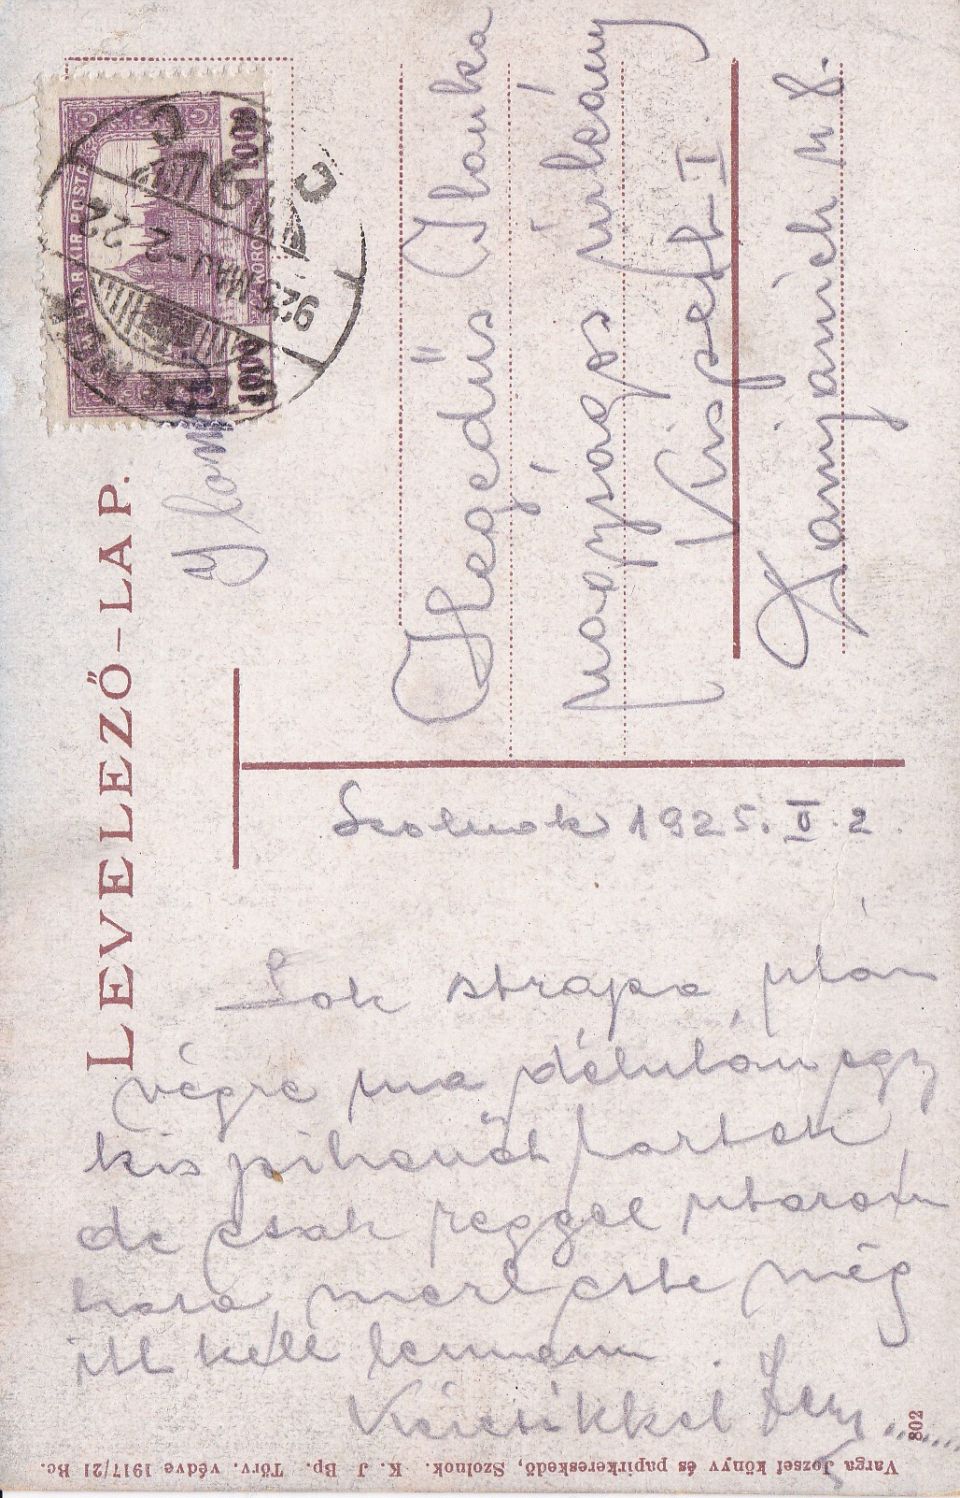 LEVELEZŐ-LAP.
MAGYAR KIR. POSTA
1000
KORONA
1000
925 MÁJ -2
22
Hegedüs Ilonka
nagyságos úrleány
Kispest-I
Damjanich u 8.
Szolnok 1925. V. 2.
Sok strapa után
végre ma délután egy
kis pihenőt tartok,
de csak reggel utazom
haza, mert este még
itt kell lennem.
802
Varga József könyv és papirkereskedő, Szolnok. K. J. Bp. Törv. védve 1917/21 Be.